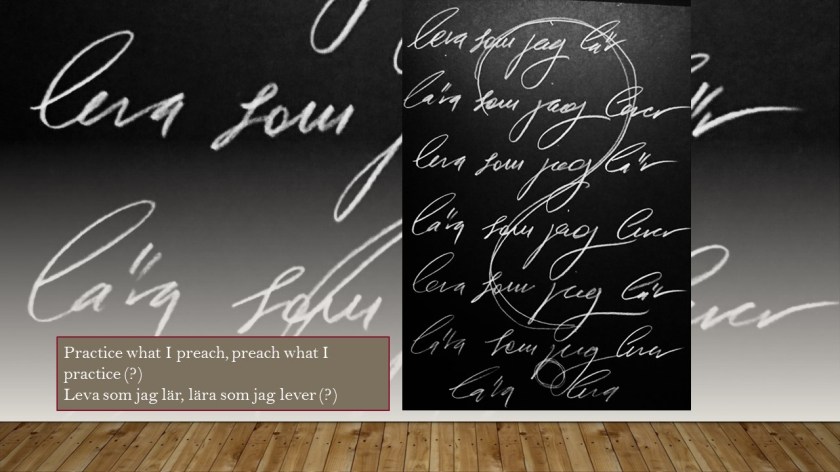 leva som
lära som
leva som jag lär
lära som jag lever
leva som jag lär
lära som jag lever
leva som jag lär
lära som jag lever
lära leva
Practice what I preach, preach what I
practice (?)
Leva som jag lär, lära som jag lever (?)